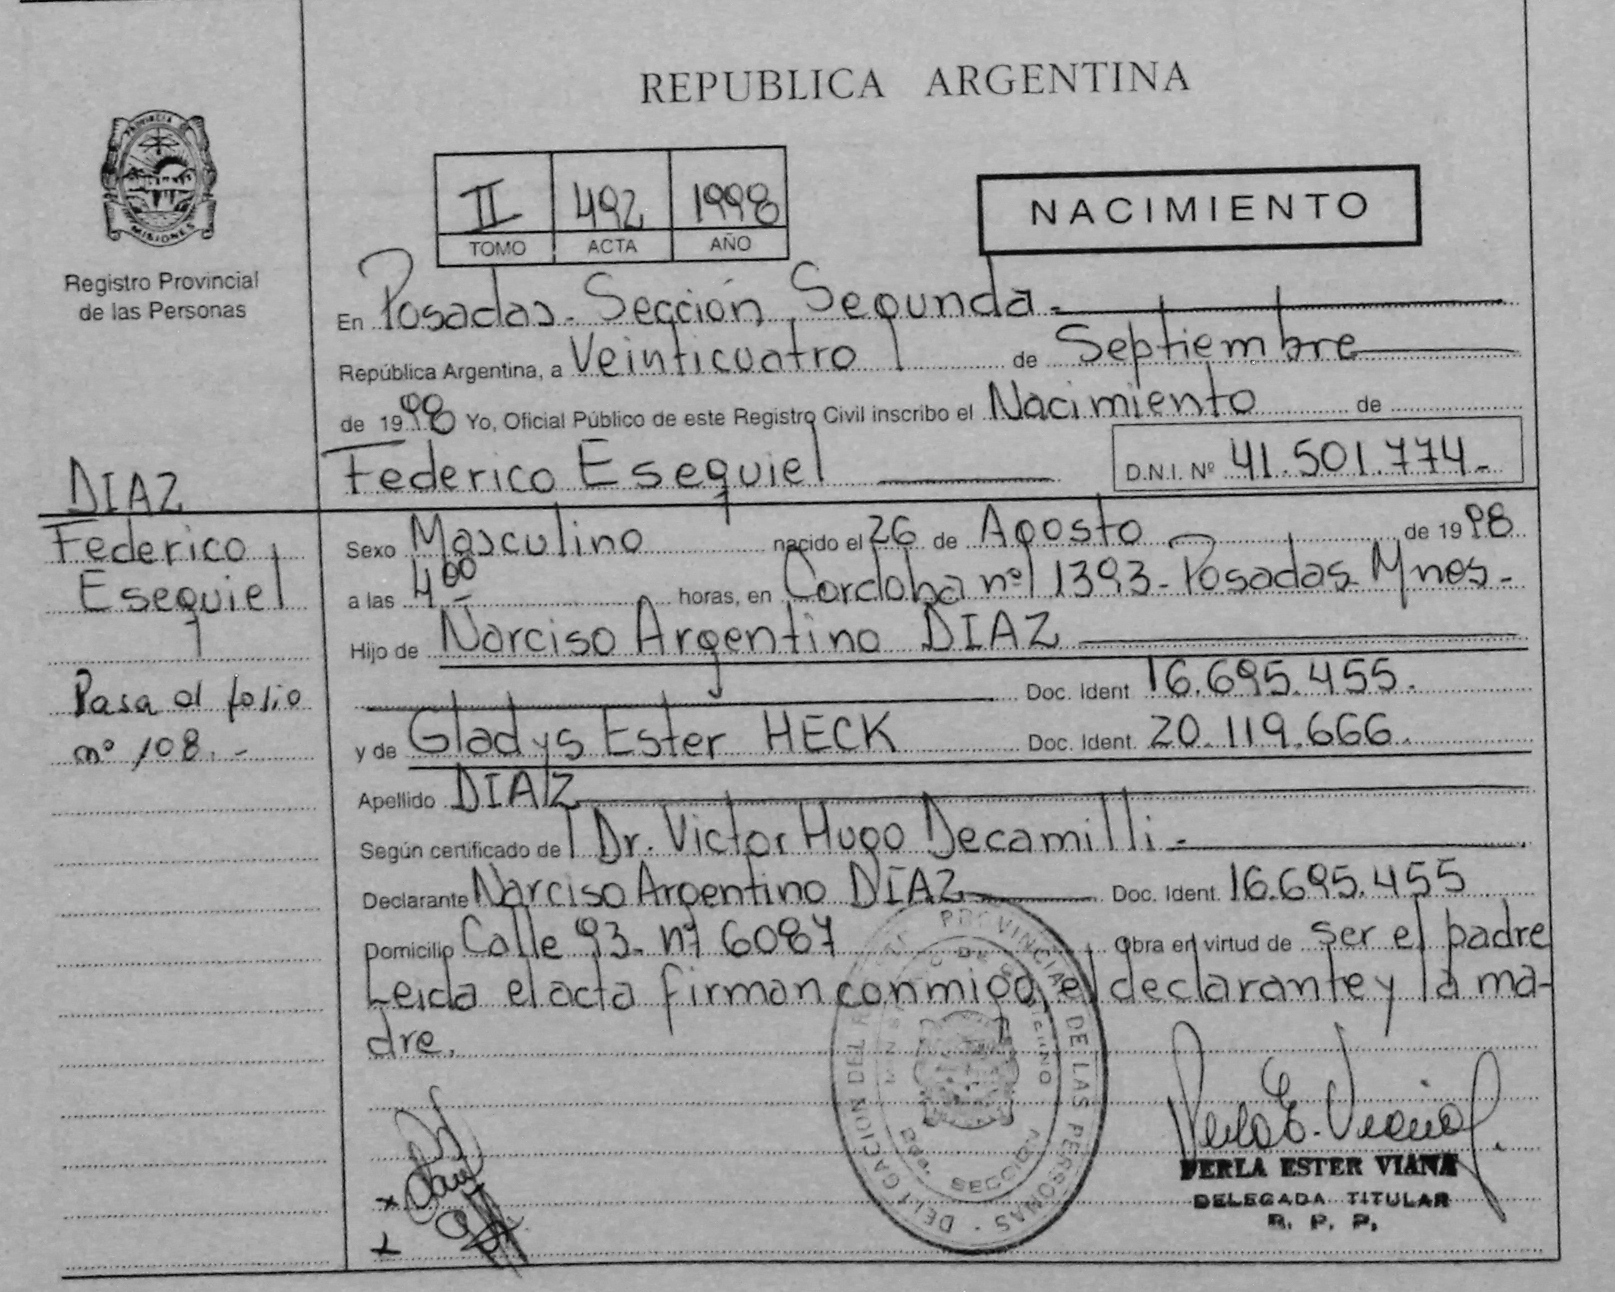 REPUBLICA ARGENTINA
PROVINCIA DE
MISIONES
Registro Provincial
de las Personas
II 492 1998
TOMO ACTA AÑO
NACIMIENTO
En Posadas - Sección Segunda -
República Argentina, a Veinticuatro de Septiembre
de 1998 Yo, Oficial Público de este Registro Civil inscribo el Nacimiento de
Federico Esequiel D.N.I. Nº 41.501.774-
DIAZ
Federico
Esequiel
Pasa al folio
nº 108.-
Sexo Masculino nacido el 26 de Agosto de 1998
a las 4 00 horas, en Cordoba nº 1393 - Posadas - Mnes -
Hijo de Narciso Argentino DIAZ
Doc. Ident 16.695.455.
y de Gladys Ester HECK Doc. Ident. 20.119.666.
Apellido DIAZ
Según certificado del Dr. Victor Hugo Decamilli -
Declarante Narciso Argentino DIAZ Doc. Ident. 16.695.455
Domicilio Calle 93 - nº 6087 Obra en virtud de ser el padre
Leida el acta firman conmigo el declarante y la ma-
dre.
DELEGACION DEL REGIST. PROVINCIAL DE LAS PERSONAS -
MINISTERIO DE GOBIERNO
2da. SECCION
Perla E. Viana
PERLA ESTER VIANA
DELEGADA TITULAR
R. P. P.